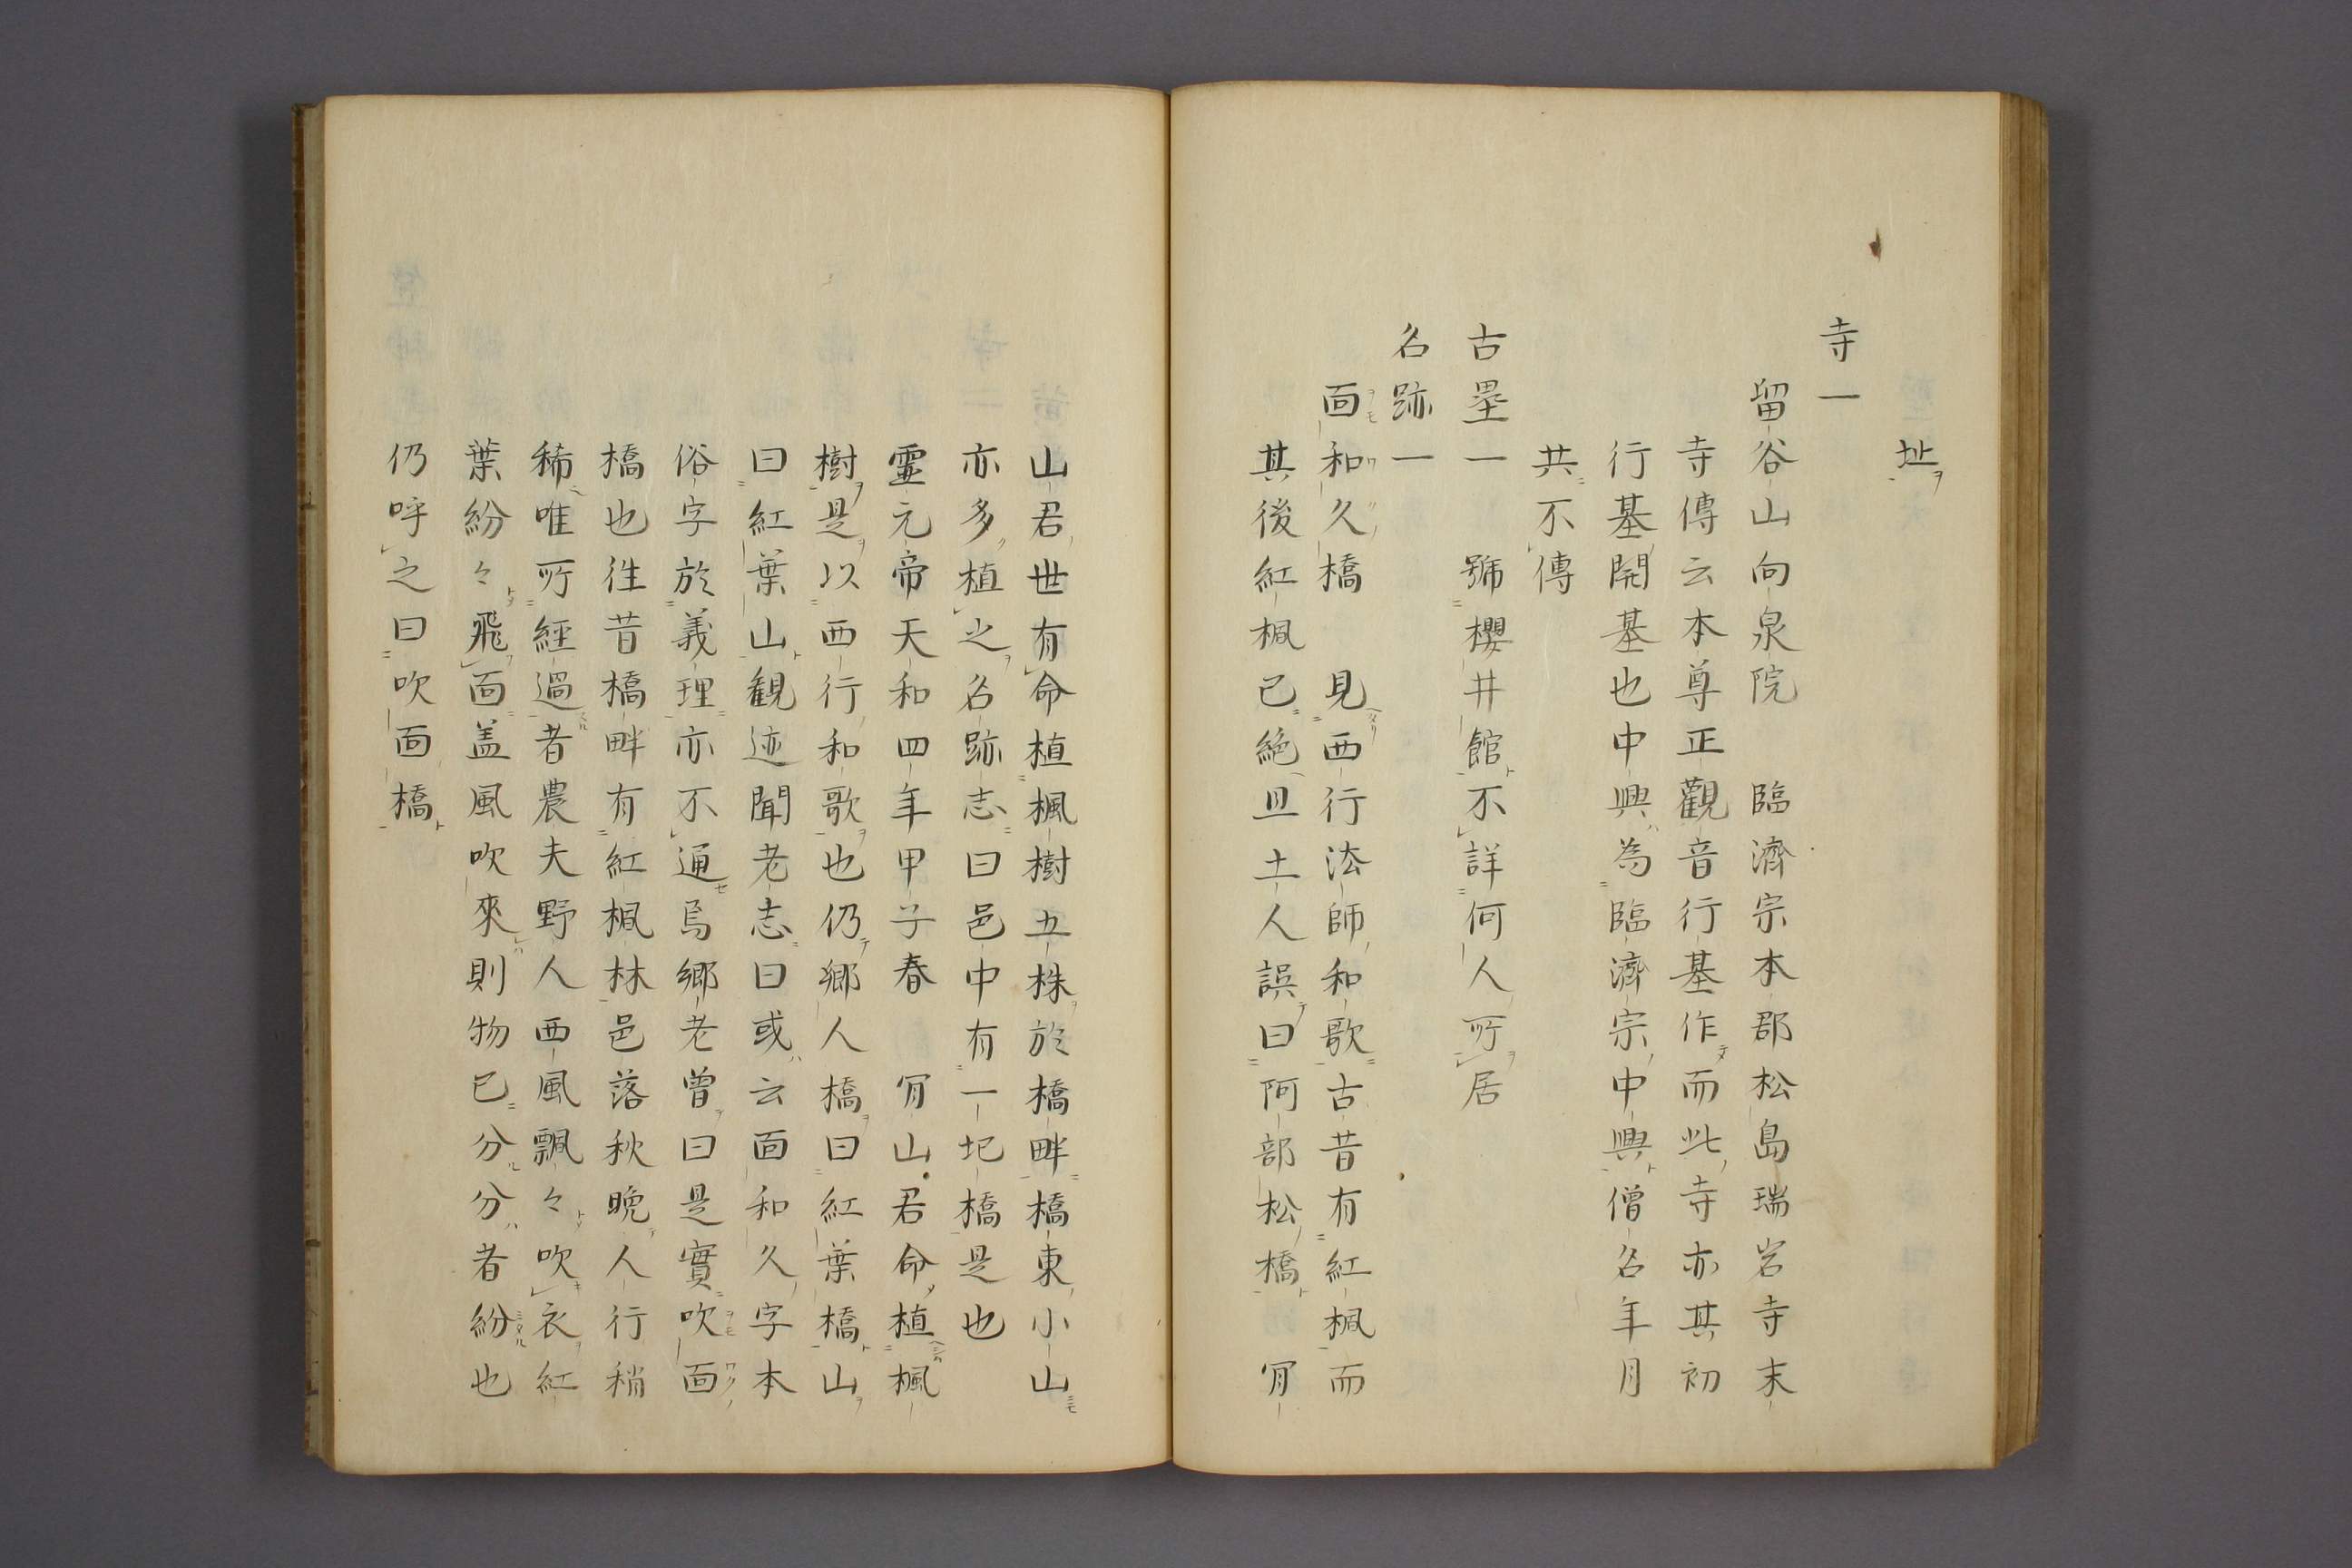 址
寺一
留谷山向泉院　臨濟宗本郡松島瑞岩寺末
寺傳云本尊正觀音行基作而此寺亦其初
行基開基也中興為臨濟宗中興僧名年月
共不傳
古壘一　號櫻井館不詳何人所居
名跡一
面和久橋　見西行法師和歌古昔有紅楓而
其後紅楓已絶且土人誤曰阿部松橋　肯
山君世有命植楓樹五株於橋畔橋東小山
亦多植之名跡志曰邑中有一圯橋是也
靈元帝天和四年甲子春　肯山君命植楓
樹是以西行和歌也仍郷人橋曰紅葉橋山
曰紅葉山観迹聞老志曰或云面和久字本
俗字於義理亦不通焉郷老曽曰是實吹面
橋也徃昔橋畔有紅楓林邑落秋晩人行稍
稀唯所經過者農夫野人西風飄々吹衣紅
葉紛々飛面盖風吹來則物已分分者紛也
仍呼之曰吹面橋